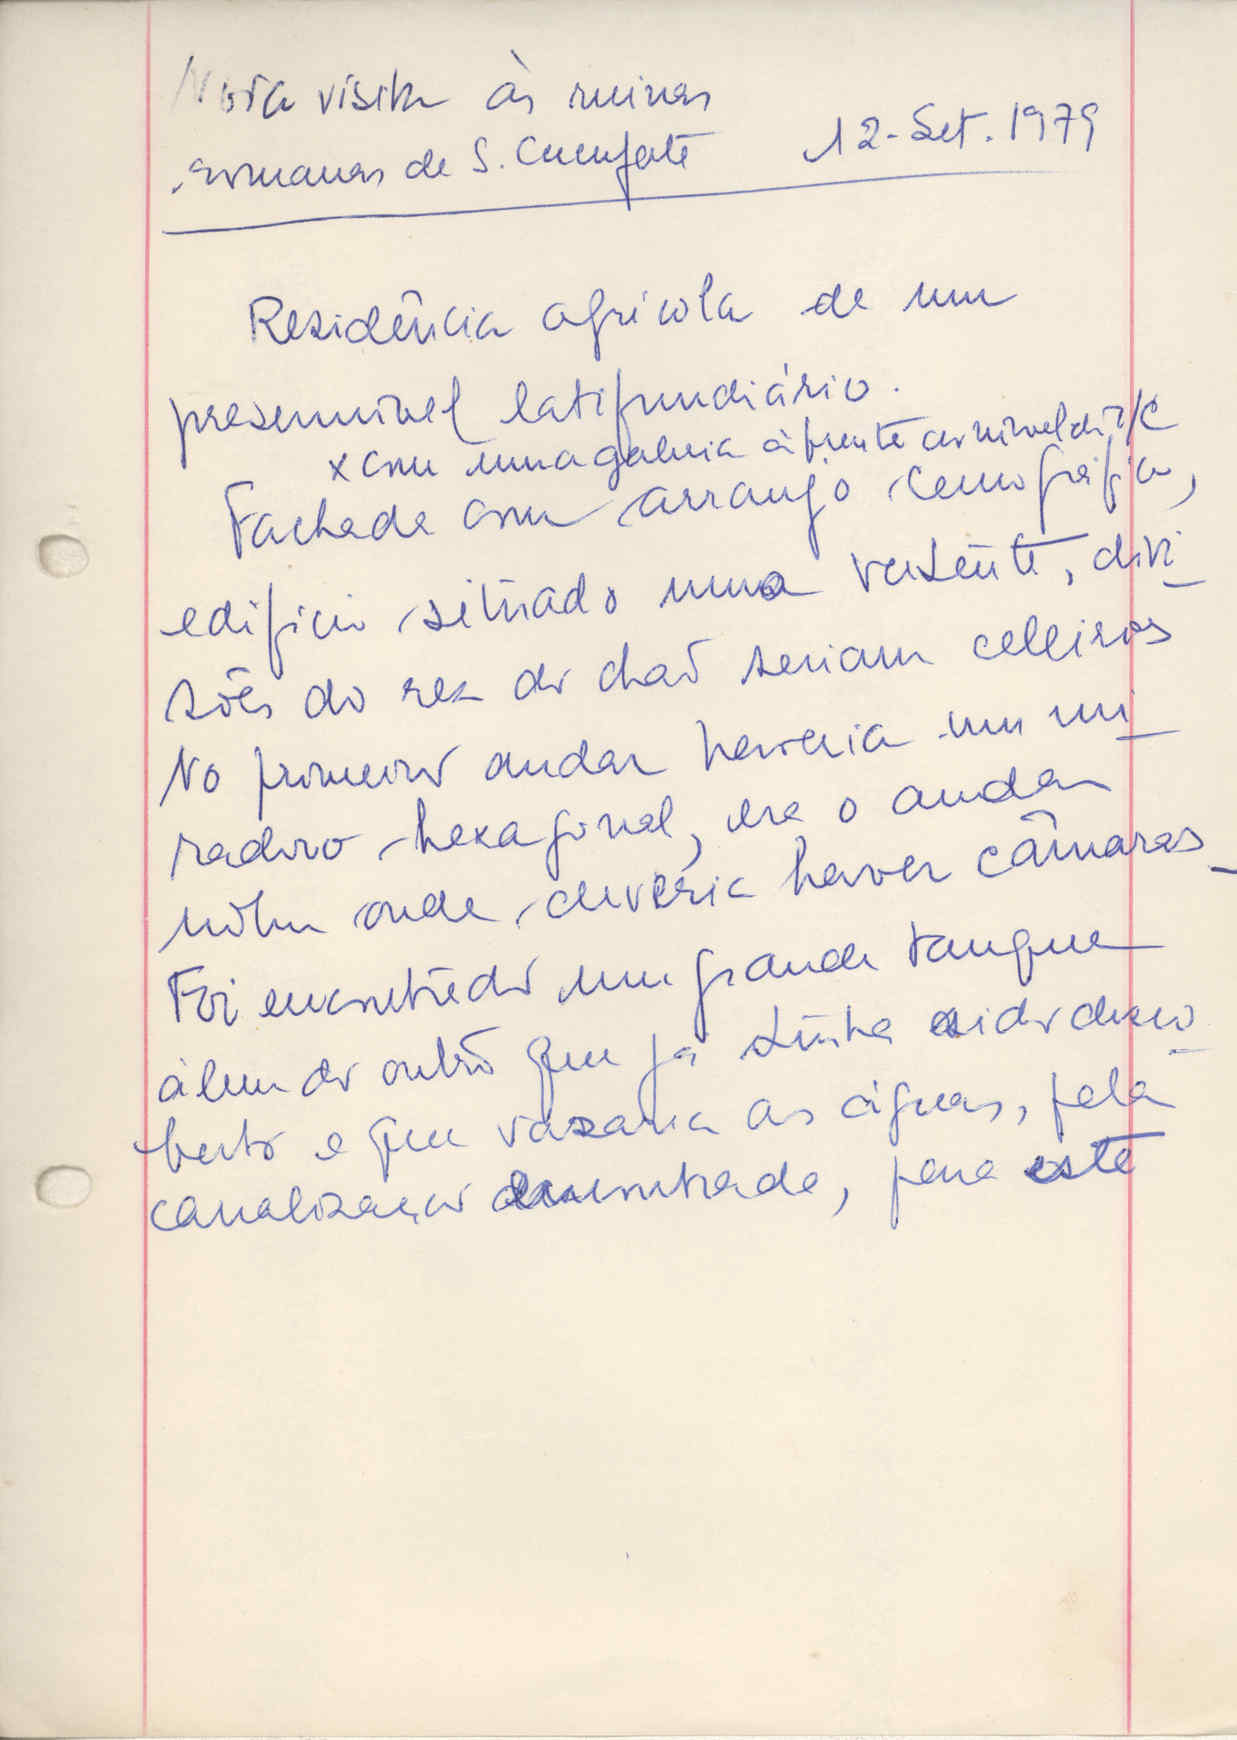 Nova visita às ruinas
romanas de S. Cucufate 12-Set. 1979
Residência agrícola de um
presumível latifundiário.
x com uma galeria à frente ao nível do r/c
Fachada com arranjo cenográfico,
edifício situado numa vertente, divi-
sões do rez do chão seriam celeiros
No primeiro andar haveria um mi-
radoiro hexagonal, era o andar
nobre onde deveria haver câmaras -
Foi encontrado um grande tanque
àlem do outro que já tinha sido desco-
berto e que vazaria as águas, pela
canalização encontrada, para este